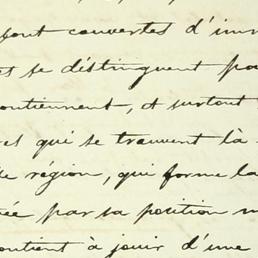 font couvertes d'imm
et se distinguent pa
contiennent, et surtout
res qui se trouvent là
le région, qui forme la
ée par sa position m
contient à jouir d'une